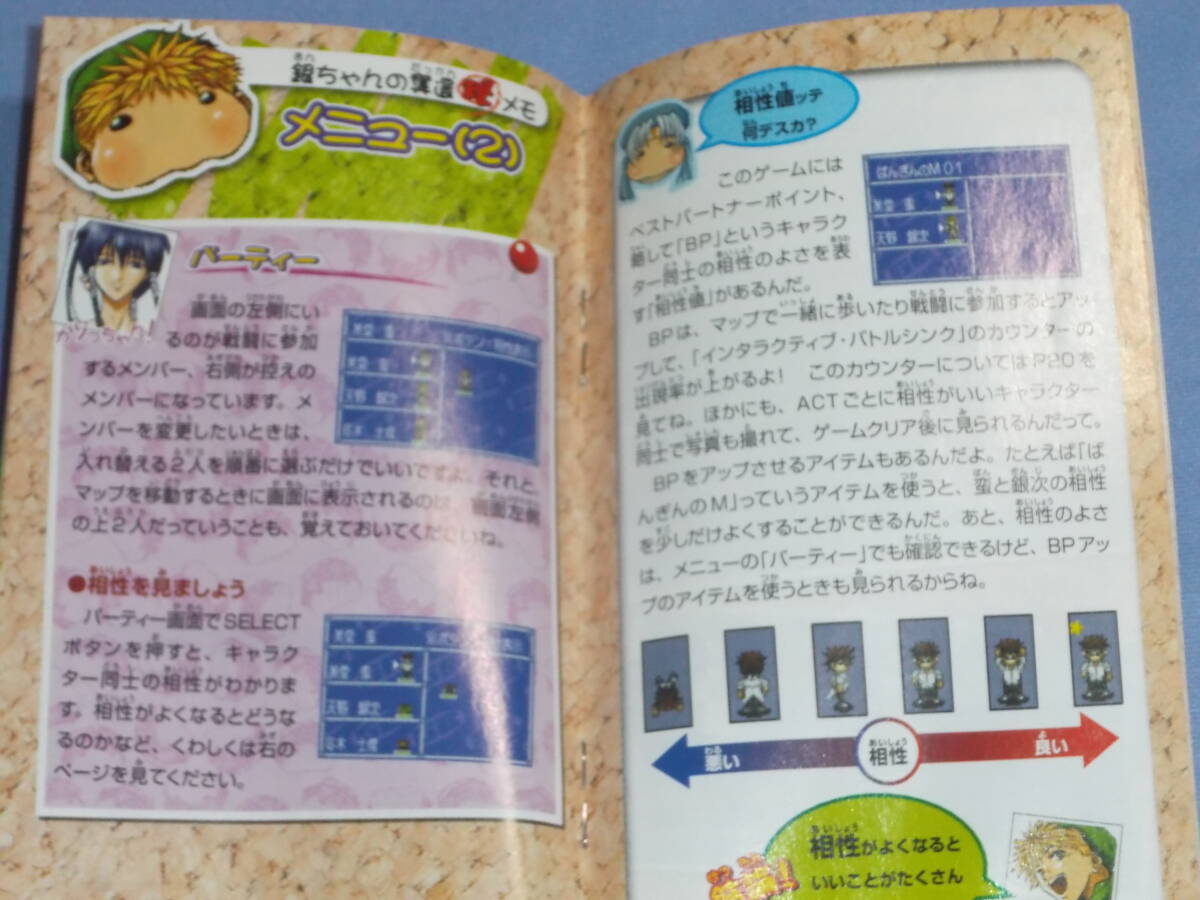 銀ちゃんの奪還㊙メモ
メニュー(2)
パーティー
画面の左側にい
るのが戦闘に参加
するメンバー、右側が控えの
メンバーになっています。メ
ンバーを変更したいときは、
入れ替える2人を順番に選ぶだけでいいですよ。それと、
マップを移動するときに画面に表示されるのは、画面左側
の上2人だっていうことも、覚えておいてくださいね。
●相性を見ましょう
パーティー画面でSELECT
ボタンを押すと、キャラク
ター同士の相性がわかりま
す。相性がよくなるとどうな
るのかなど、くわしくは右の
ページを見てください。
美堂 蛮
天野 銀次
相性値ッテ
何デスカ?
このゲームには
ベストパートナーポイント、
略して「BP」というキャラク
ター同士の相性のよさを表
す「相性値」があるんだ。
BPは、マップで一緒に歩いたり戦闘に参加するとアッ
プして、「インタラクティブ・バトルシンク」のカウンターの
出現率が上がるよ! このカウンターについてはP20を
見てね。ほかにも、ACTごとに相性がいいキャラクター
同士で写真も撮れて、ゲームクリア後に見られるんだって。
BPをアップさせるアイテムもあるんだよ。たとえば「ば
んぎんのM」っていうアイテムを使うと、蛮と銀次の相性
を少しだけよくすることができるんだ。あと、相性のよさ
は、メニューの「パーティー」でも確認できるけど、BPアッ
プのアイテムを使うときも見られるからね。
ばんぎんのM 01
美堂 蛮
天野 銀次
悪い
相性
良い
相性がよくなると
いいことがたくさん